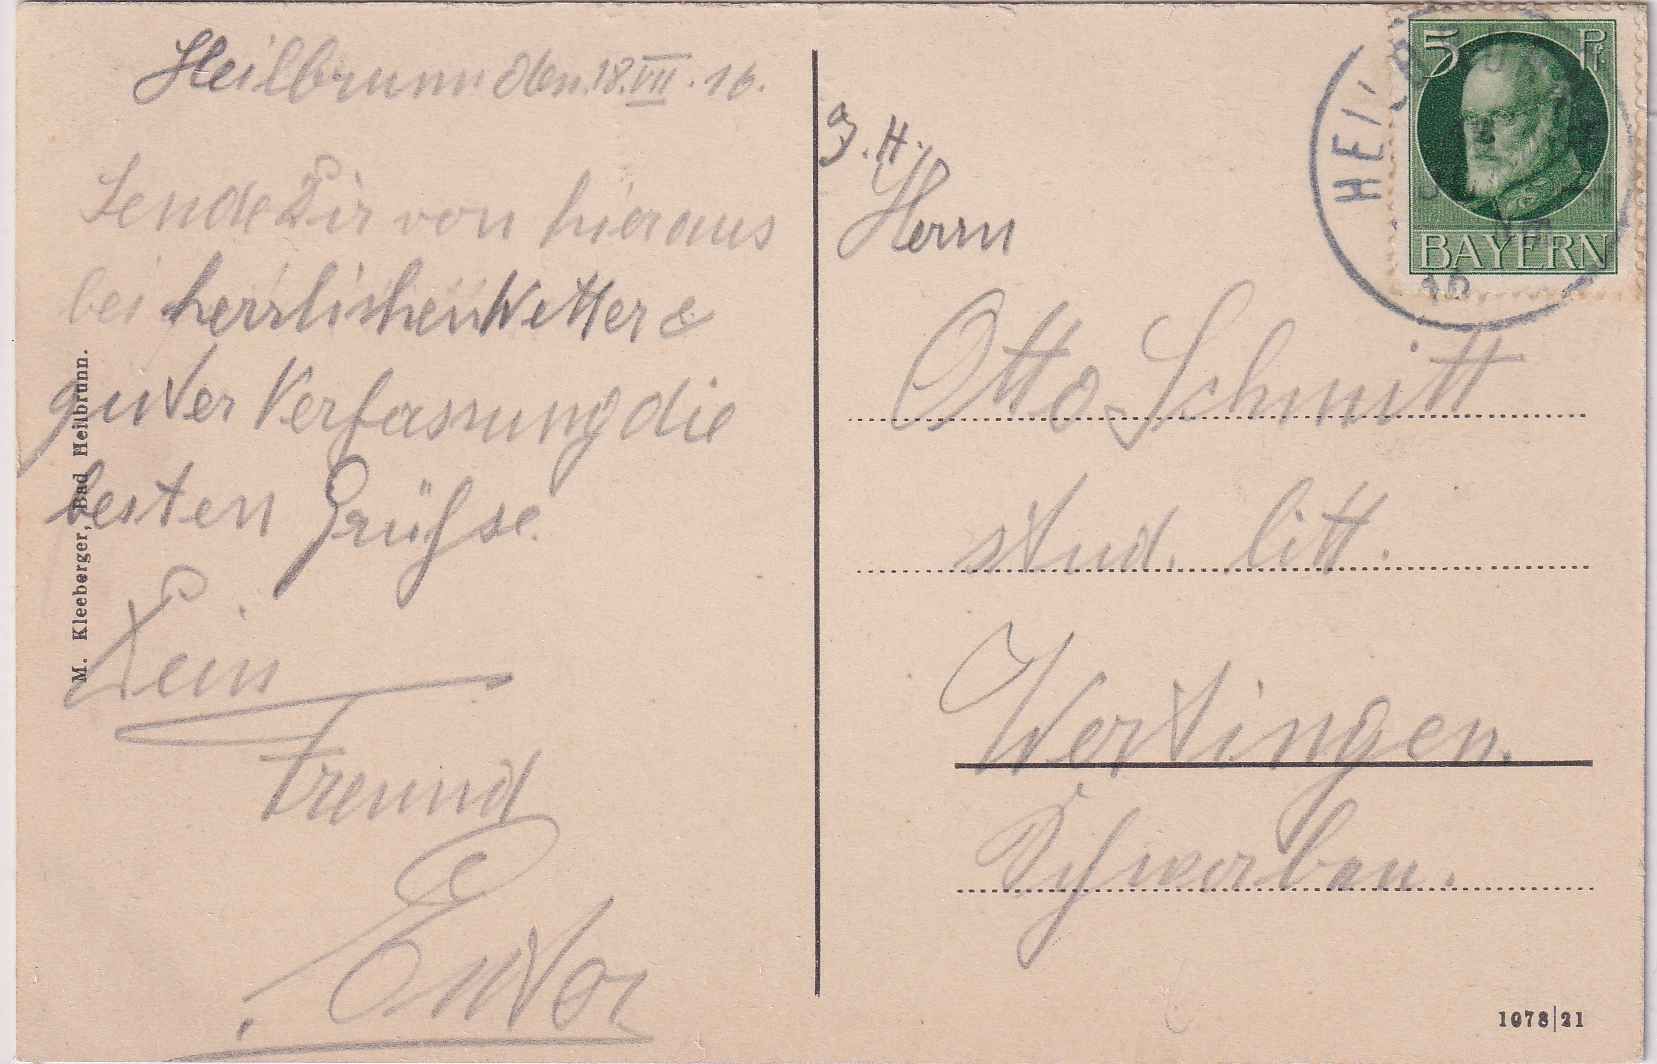 Heilbrunn den 18.VII.16.
Sende Dir von hieraus
bei herrlichen Wetter &
guter Verfassung die
besten Grüße.
Dein
Freund
M. Kleeberger, Bad Heilbrunn.
H.
Herrn
Otto Schmitt
stud. litt.
Wertingen.
Schwaben.
5 Pf
BAYERN
HEIL
16
1078|21